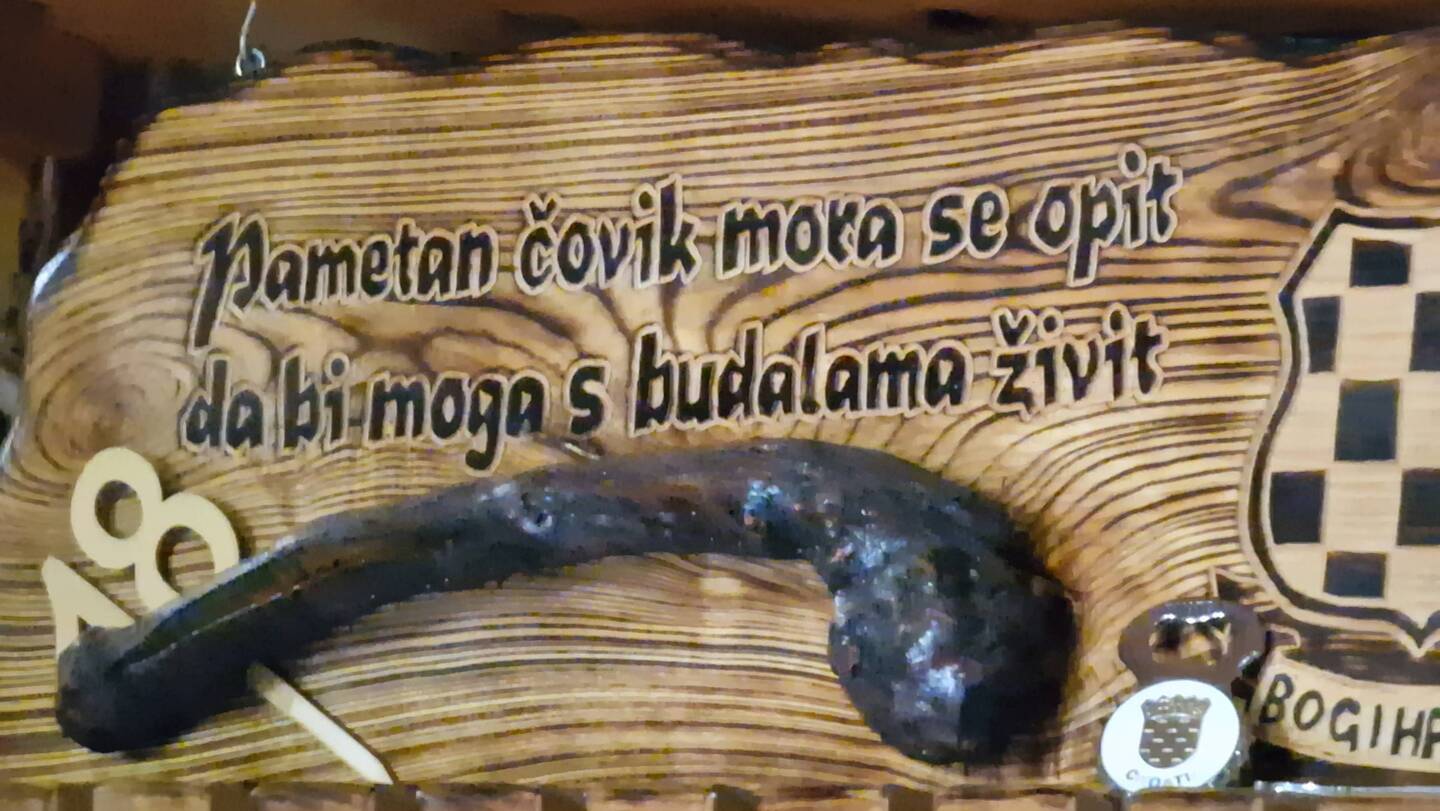 Pametan čovik mora se opit
da bi moga s budalama živit
18
BOG I HR
CROATIA